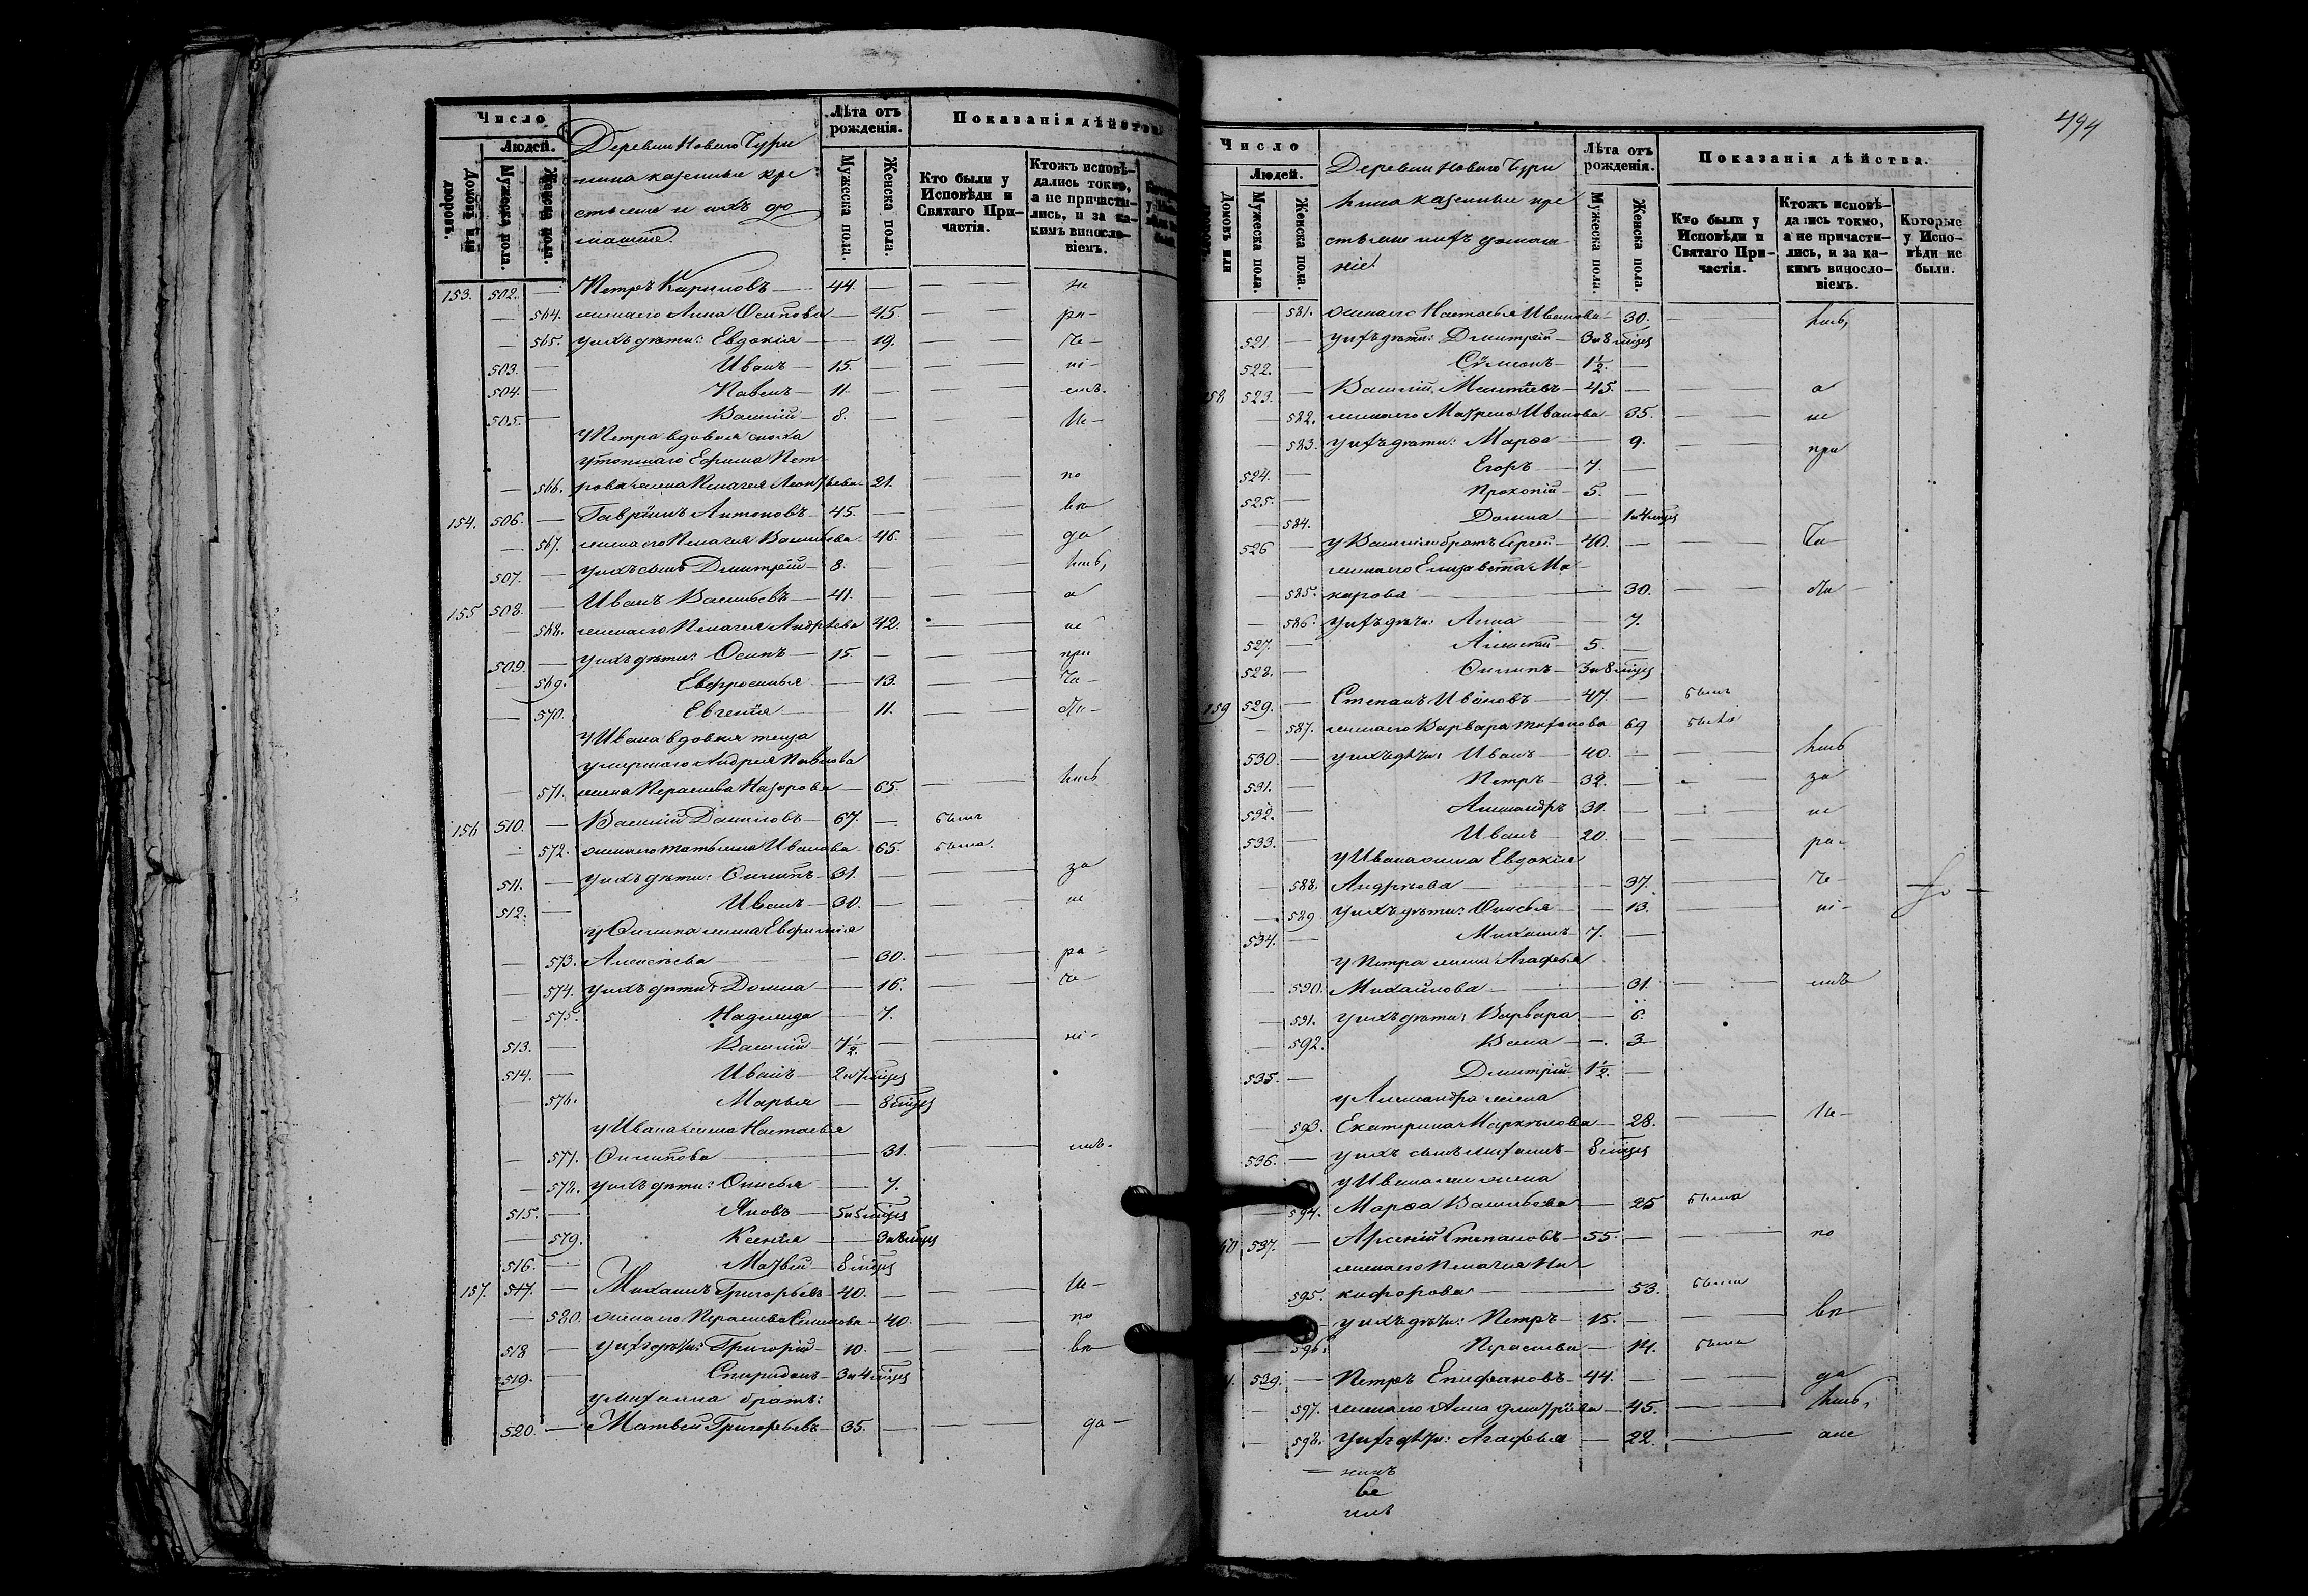 Число
Людей.
Домовъ или дворовъ.
Мужеска пола.
Женска пола.
Деревни Новаго Чури
лина казенные кре
стьяне и ихъ до
машніе.
Лѣта отъ рожденія.
Мужеска пола.
Женска пола.
Показанія дѣйства.
Кто были у Исповѣди и Святаго При-частія.
Ктожъ исповѣ-дались токмо, а не причасти-лись, и за ка-кимъ винosло-віемъ.
153. 502. — Петръ Кириловъ — 44. — — не
— 564. жена его Анна Осипова — 45. — ра-
— 565. у нихъ дѣти: Евдокія — 19. — че-
503. — Иванъ — 15. — — ні-
504. — Павелъ — 11. — — емъ.
505. — Василій — 8. — — Не-
у Петра вдовая сноха
утопшаго Ефима Пет-
— 566. рова жена Пелагея Леонтьева 21. — по
154. 506. — Гаврiилъ Антоновъ — 45. — — вѣ
— 567. жена его Пелагея Васильева 46. — да
507. — у нихъ сынъ Дмитрій — 8. — — лись,
155 508. — Иванъ Васильевъ — 41. — — а
— 568. жена его Пелагея Андреева 42. — не
509. — у нихъ дѣти: Осипъ — 15. — — при
— 569. Евфросинья — 13. — ча-
— 570. Евгенія — 11. — сти-
у Ивана вдовая теща
умершаго Андрея Павлова
— 571. жена Парасковья Назарова — 65. — лись
156 510. — Василій Даниловъ — 67. — былъ
— 572. жена его Татьяна Иванова 65. была.
511. — у нихъ дѣти: Филипъ — 31. — — за
512. — Иванъ — 30. — — не
у Филипа жена Евфимія
— 573. Алексѣева — 30. — ра-
— 574. у нихъ дѣти: Домна — 16. — че-
— 575. Надежда — 7.
513. — Василій — 7½ — — ні-
514. — Иванъ — 2 и 7 мѣсяц
— 576. Марья — 8 мѣсяц
у Ивана жена Настасья
— 577. Филипова — 31. — емъ.
— 578. у нихъ дѣти: Анисья — 7.
515. — Яковъ — 5 и 5 мѣсяц
— 579. Ксенія — 3 и 8 мѣсяц
516. — Матвѣй — 8 мѣсяц
157. 517. — Михаилъ Григорьевъ — 40. — — Не-
— 580. жена его Парасковья Семенова — 40. — по
518 — у нихъ дѣти: Григорій — 10. — — вѣ
519. — Спиридонъ — 3 и 4 мѣсяц
у Михаила братъ:
520. — Матвѣй Григорьевъ — 35. — — да-
494
Число
Людей.
Домовъ или
Мужеска пола.
Женска пола.
Деревни Новаго Чури
лина казенные кре
стьяне и ихъ домаш-
ніе.
Лѣта отъ рожденія.
Мужеска пола.
Женска пола.
Показанія дѣйства.
Кто были у Исповѣди и Святаго При-частія.
Ктожъ исповѣ-дались токмо, а не причасти-лись, и за ка-кимъ винosло-віемъ.
Которые у Испо-вѣди не были.
— 581. жена его Настасья Иванова — 30. — лись,
521 — у нихъ дѣти: Дмитрій — 3 и 8 мѣсяц
522. — Симеонъ — 1½ —
58 523. — Василій Матвѣевъ — 45. — — а
— 582. жена его Матрена Иванова 35. — не
— 583. у нихъ дѣти: Марѳа — 9. — при
524. — Егоръ — 7. —
525. — Прокопій — 5. —
— 584. Домна — 1 и 4 мѣсяц
526 — у Василія братъ Сергѣй — 40. — — ча-
жена его Елизавета Ма-
— 585. карова — 30. — сти-
— 586. у нихъ дѣти: Анна — 7.
527. — Алексѣй — 5. —
528. — Филипъ — 3 и 8 мѣсяц
159 529. — Степанъ Ивановъ — 47. — былъ
— 587. жена его Варвара 69 была
530. — у нихъ дѣти: Иванъ — 40. — — лись
531. — Петръ — 32. — — за
532. — Александръ 31. — — не
533. — Иванъ — 20. — — ра-
у Ивана жена Евдокія
— 588. Андреева — 37. — че-
— 589 у нихъ дѣти: Анисья — 13. — ні-
534. — Михаилъ 7. —
у Петра жена Агафья
— 590. Михайлова — 31. — емъ
— 591. у нихъ дѣти: Варвара — 6.
— 592. — 3
535. — Дмитрій 1½ —
у Александра жена
— 593. Екатерина Маркелова — 28. — Не-
536. — у нихъ сынъ Михаилъ — 8 мѣсяц
у Ивана жена
— 594. Марѳа Васильева — 25 была
60 537. — Арсеній Степановъ — 55. — — по
жена его Пелагея Ни-
— 595. кифорова — 53. была
у нихъ дѣти: Петръ — 15. — — вѣ
— 596. Парасковья — 14. была
1. 539. — Петръ Епифановъ — 44. — — да
— 597. жена его Анна Дмитріева — 45. — лись,
— 598. у нихъ дѣти: Агафья — 22. — а не